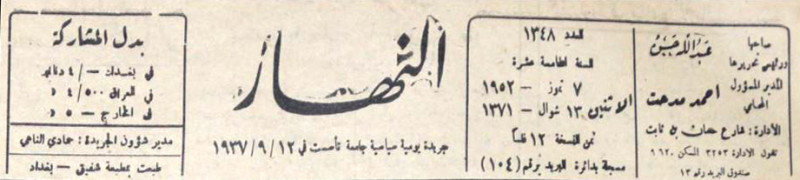 صاحبها
ورئيس تحريرها
عبد الله حسن
المدير المسؤول
المحامي
احمد مدحت
الادارة : شارع حسان بن ثابت
تلفون الادارة ٣٢٥٣ المسكن ٩٦٢٠
صندوق البريد رقم ١٣
العدد ١٣٤٨
السنة الخامسة عشرة
٧ تموز - ١٩٥٢
الاثنين ١٣ شوال - ١٣٧١
ثمن النسخة ١٢ فلساً
مسجلة بدائرة البريد برقم (١٠٤)
النهار
جريدة يومية سياسية جامعة تأسست في ١٢/٩/١٩٣٧
بدل المشاركة
في بغداد -/٤ دنانير
في العراق ٤/٥٠٠ د
في الخارج - ٥ د
مدير شؤون الجريدة : حمادي الناهي
طبعت بمطبعة شفيق - بغداد